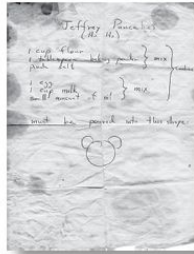 Jeffrey Pancakes
1 cup flour
1 tablespoon baking powder } mix
pinch salt
combine
1 egg
1 cup milk } mix
small amount of oil
must be poured into this shape.